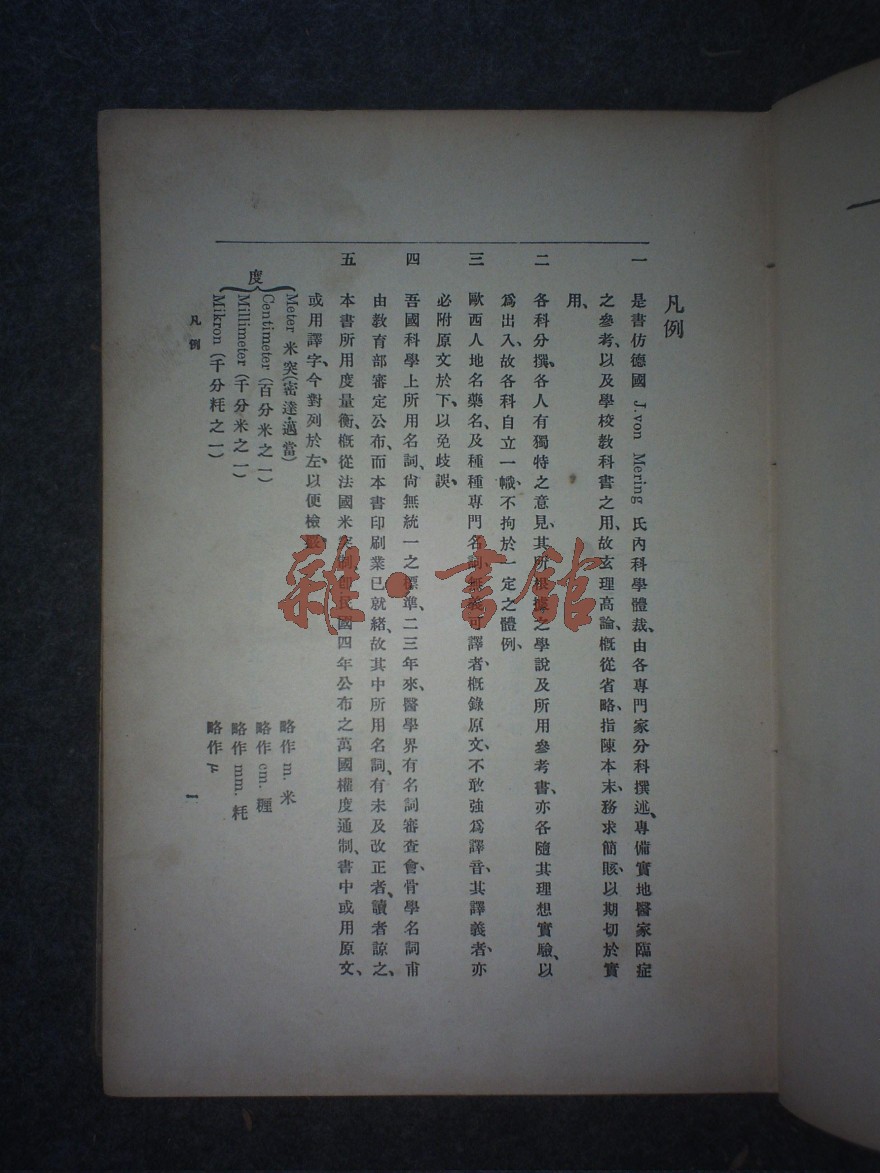 凡例
一 是書仿德國 J. von Mering 氏內科學體裁、由各專門家分科撰述、專備實地醫家臨症
之參考、以及學校教科書之用、故玄理高論、概從省略、指陳本末、務求簡賅、以期切於實
用、
二 各科分撰、各人有獨特之意見、其所根據之學說及所用參考書、亦各隨其理想實驗、以
爲出入、故各科自立一幟、不拘於一定之體例、
三 歐西人地名藥名、及種種專門名詞、無義可譯者、概錄原文、不敢強爲譯音、其譯義者、亦
必附原文於下、以免歧誤、
四 吾國科學上所用名詞、尙無統一之標準、二三年來、醫學界有名詞審查會、骨學名詞甫
由教育部審定公布、而本書印刷業已就緒、故其中所用名詞、有未及改正者、讀者諒之、
五 本書所用度量衡、概從法國米突制、即民國四年公布之萬國權度通制、書中或用原文、
或用譯字、今對列於左、以便檢
度
Meter 米突(密達・邁當) 略作 m. 米
Centimeter (百分米之一) 略作 cm. 糎
Millimeter (千分米之一) 略作 mm. 粍
Mikron (千分粍之一) 略作 μ
凡例
一
雜・書館